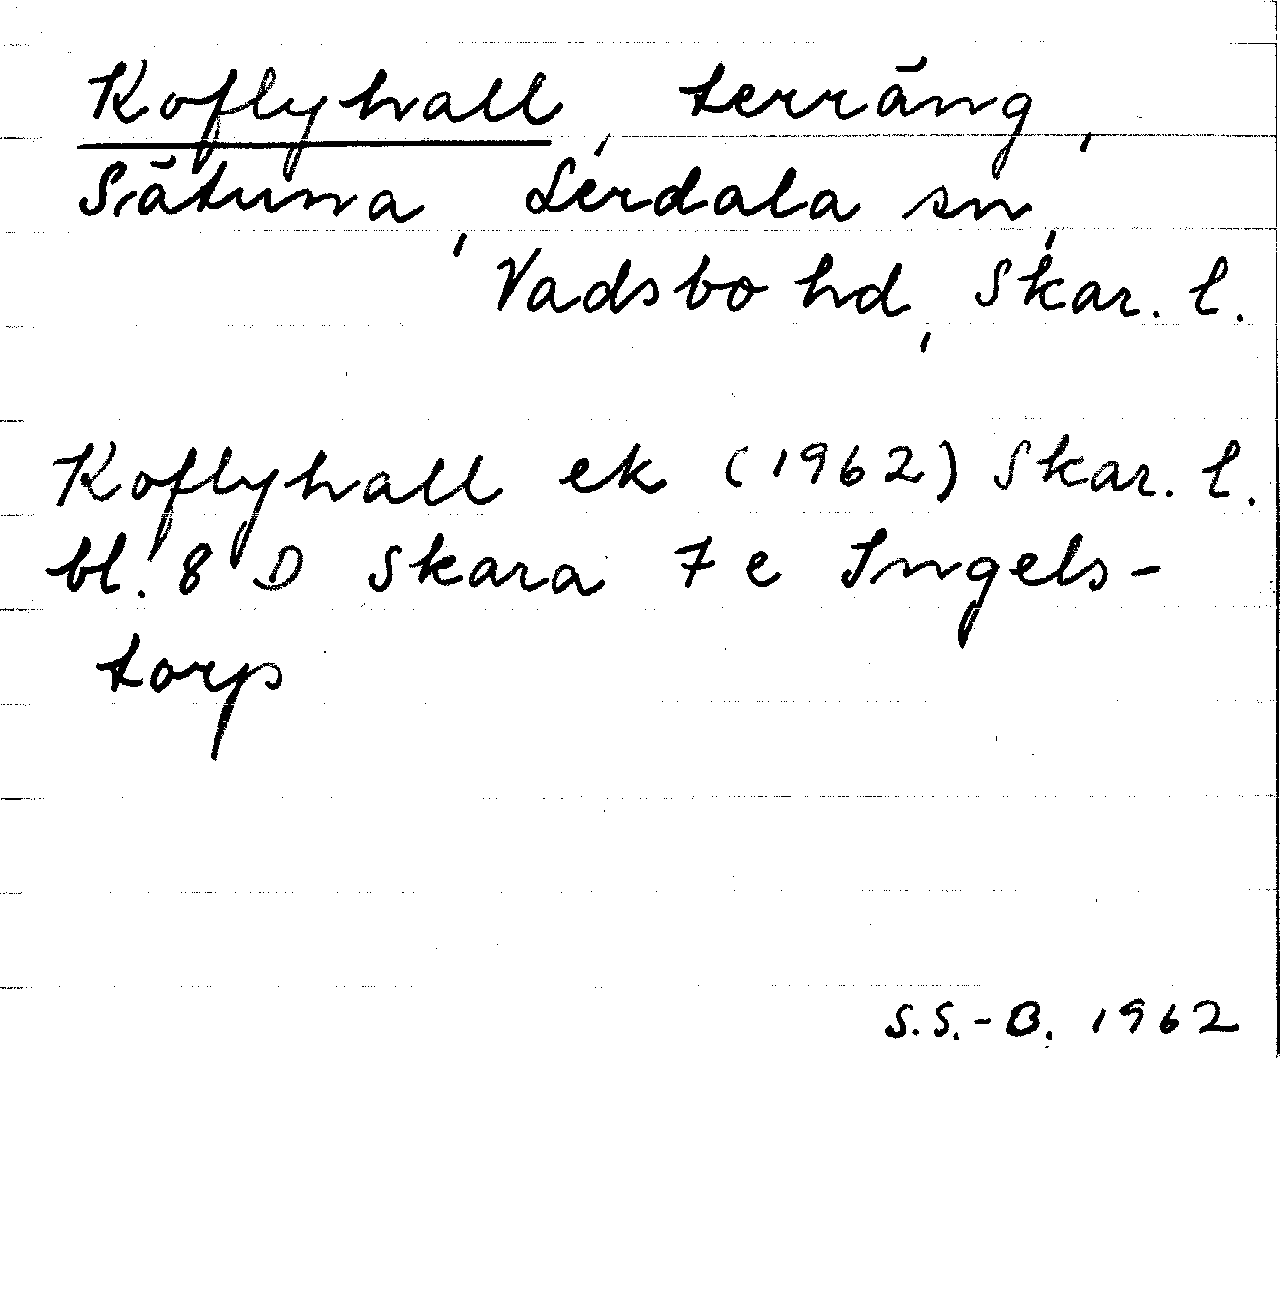 Koflyhall, terräng,
Sätuna, Lerdala sn,
Vadsbo hd, Skar. l.
Koflyhall ek (1962) Skar. l.
bl. 8 D Skara 7 e Ingels-
torp
S.S.-B. 1962